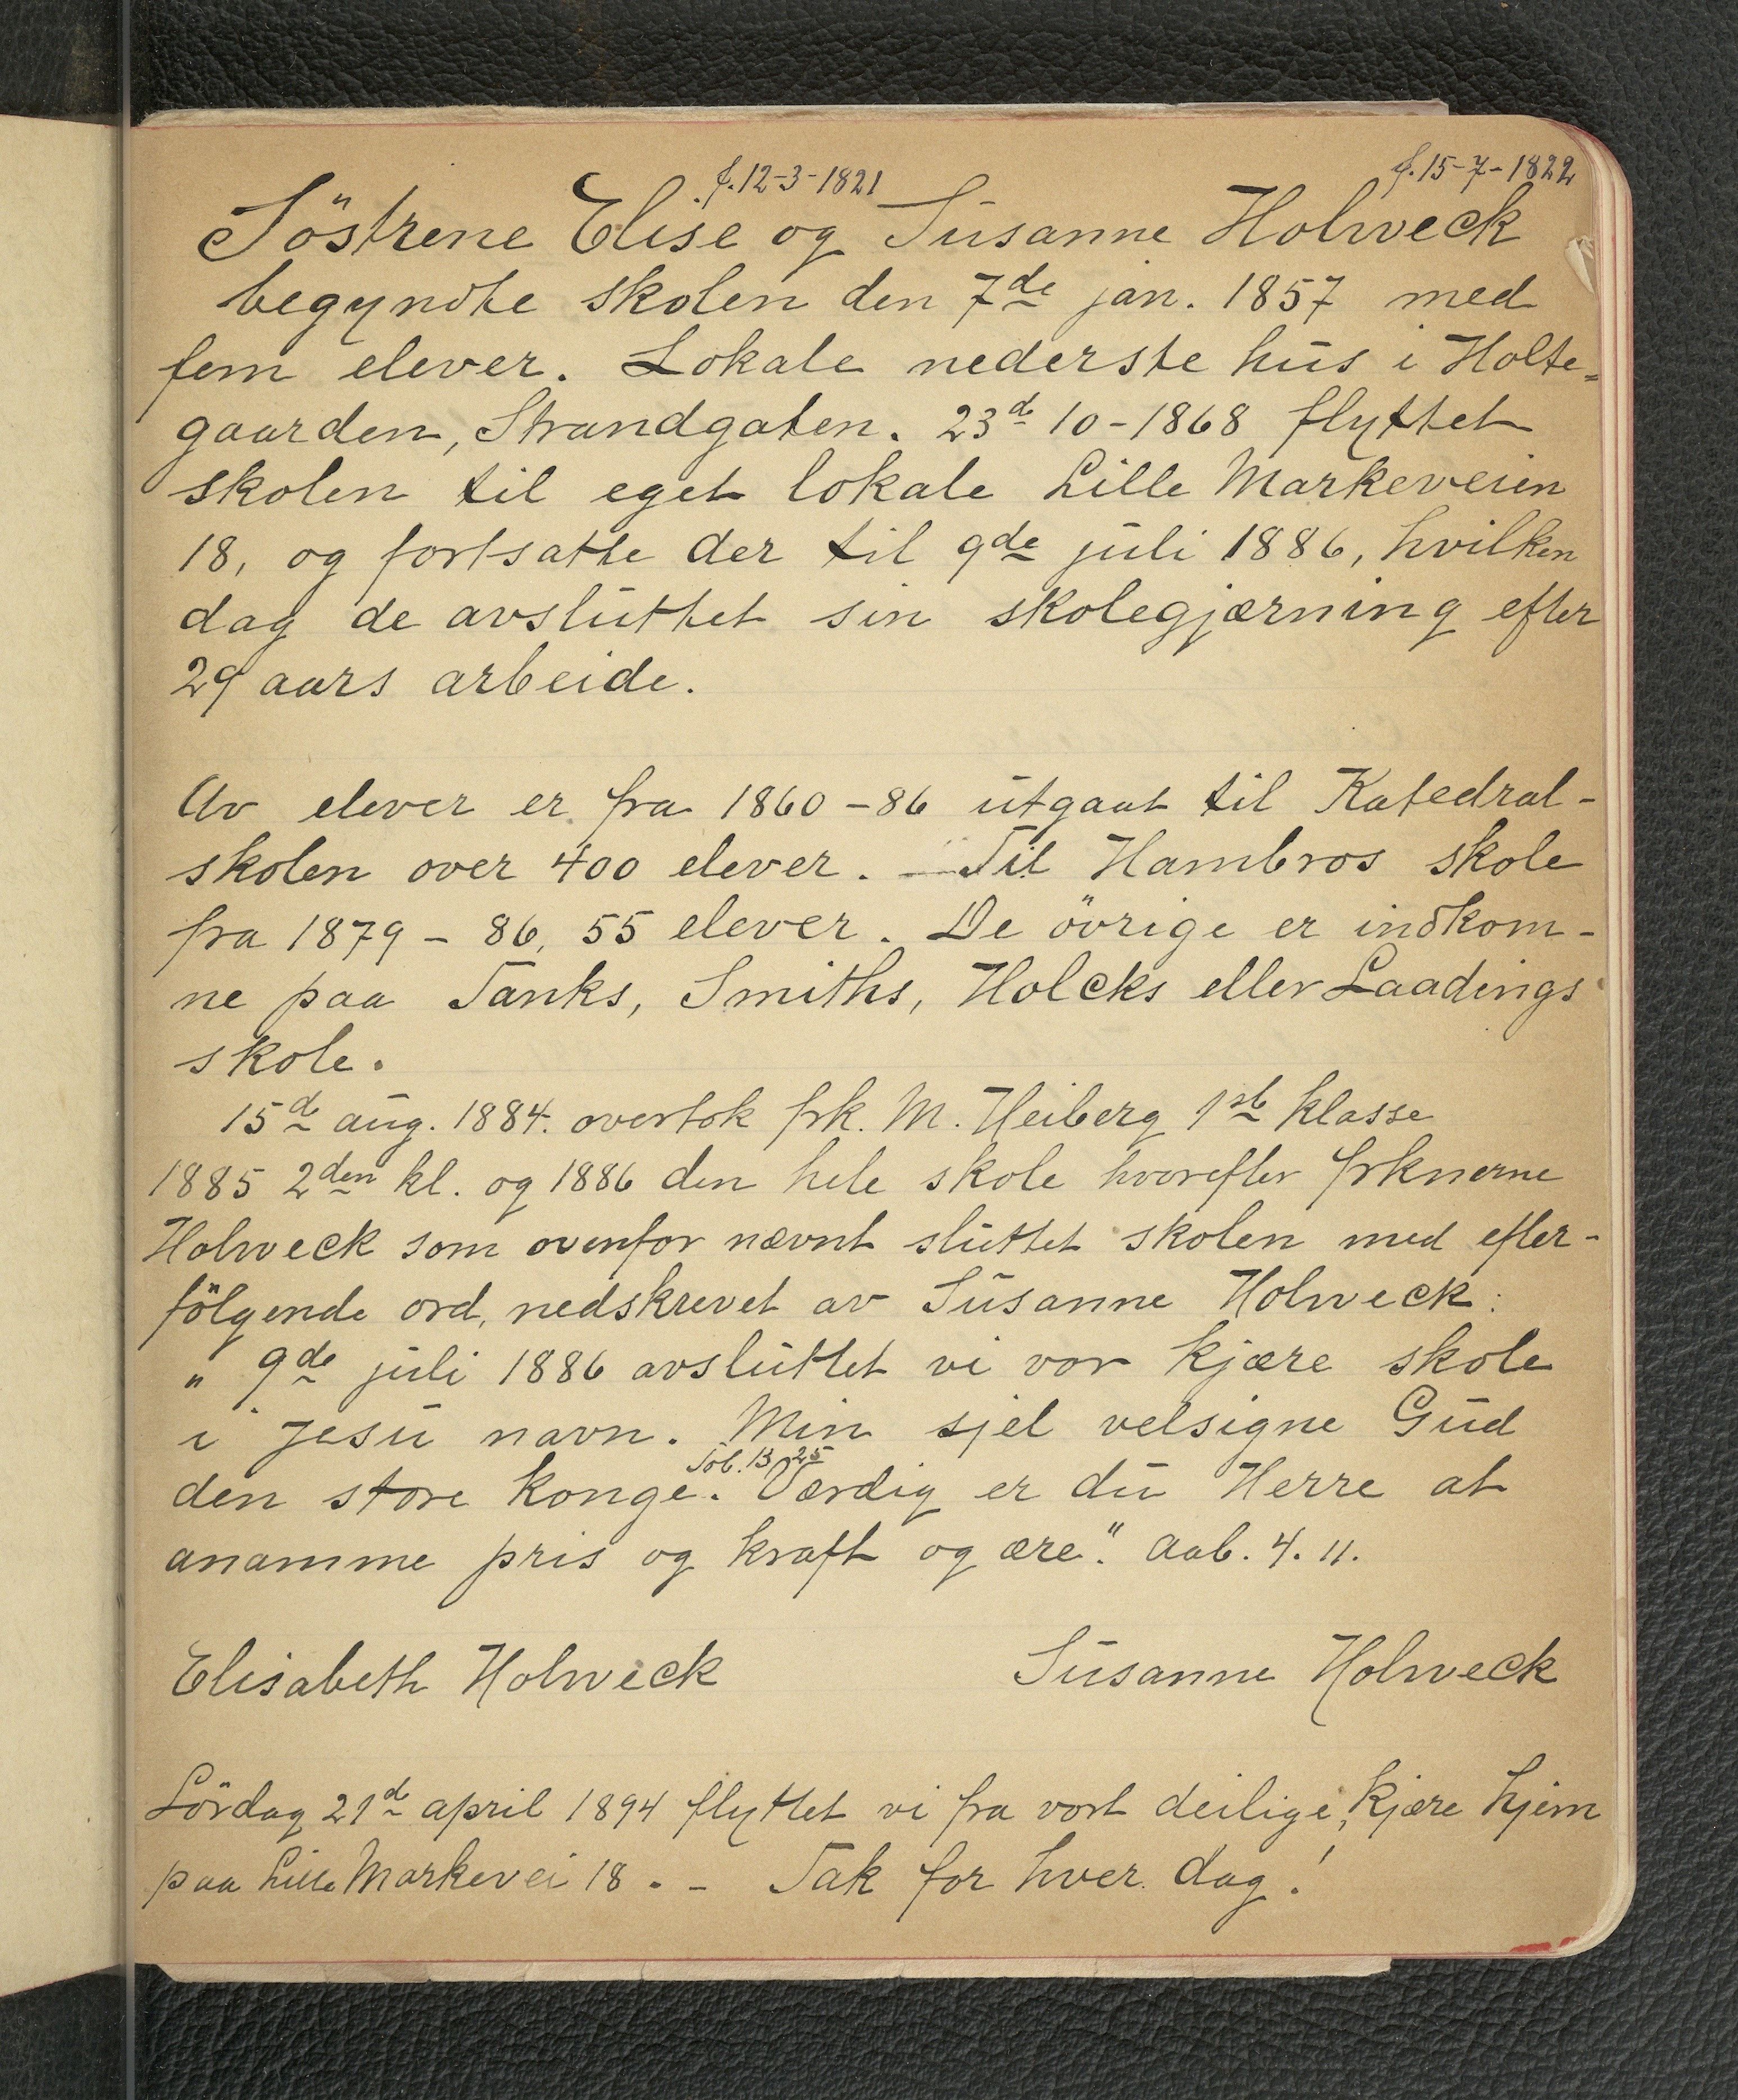 f. 12-3-1821 f. 15-7-1822
Söstrene Elise og Susanne Holweck
begyndte skolen den 7de jan. 1857 med
fem elever. Lokale nederste hus i Holte=
gaarden, Strandgaten. 23de 10-1868 flyttet
skolen til eget lokale Lille Markeveien
18, og fortsatte der til 9de juli 1886, hvilken
dag de avsluttet sin skolegjærning efter
29 aars arbeide.
Av elever er fra 1860-86 utgaat til Katedral-
skolen over 400 elever. - Til Hambros skole
fra 1879-86, 55 elever. De övrige er indkom-
ne paa Tanks, Smiths, Holcks eller Laadings
skole.
15de aug. 1884. overtok frk. M. Heiberg 1ste klasse
1885 2den kl. og 1886 den hele skole hvorefter frknerne
Holweck som ovenfor nævnt sluttet skolen med efter-
fölgende ord, nedskrevet av Susanne Holweck:
„ 9de juli 1886 avsluttet vi vor kjære skole
i Jesu navn. Min sjel velsigne Gud
den store konge. Tob. 13, 25 Værdig er du Herre at
anamme pris og kraft og ære." Aab. 4. 11.
Elisabeth Holweck Susanne Holweck
Lördag 21de april 1894 flyttet vi fra vort deilige, kjære hjem
paa Lille Markevei 18. - Tak for hver dag!